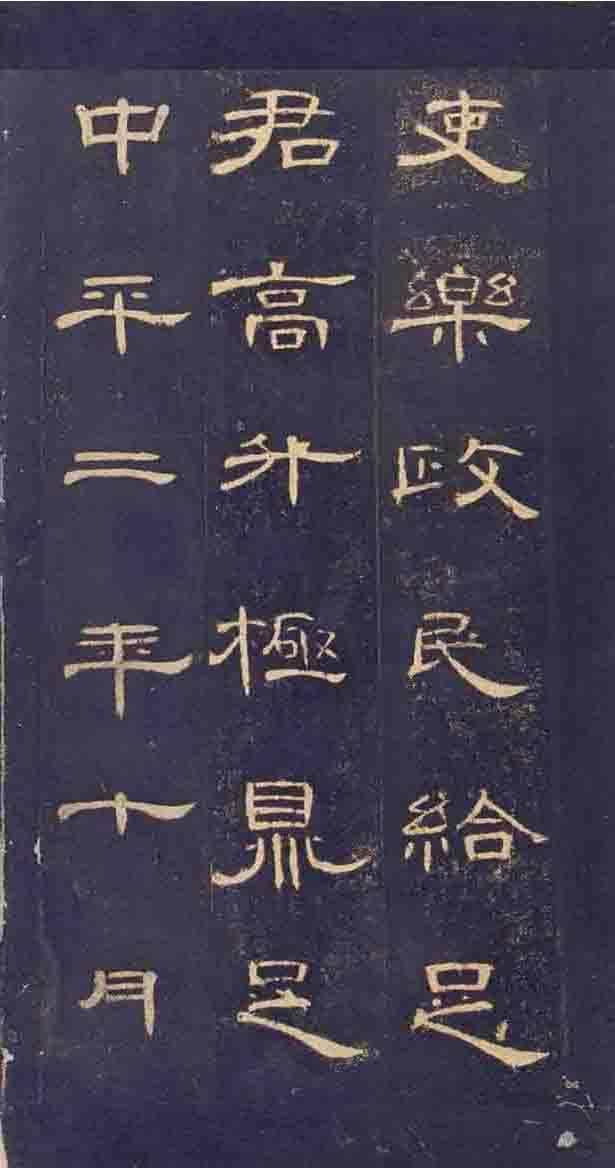 吏樂政民給足
君高升極鼎足
中平二年十月